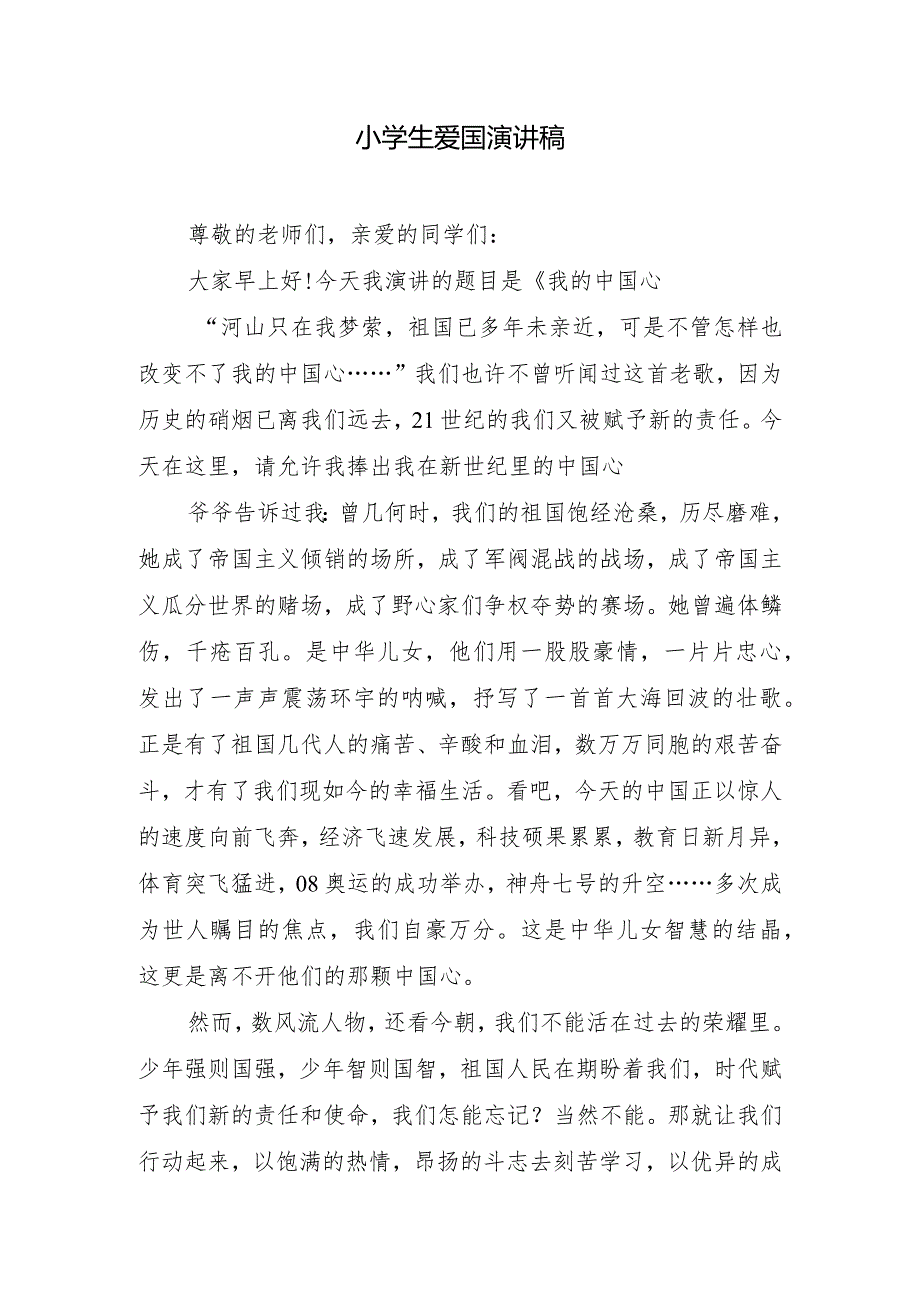 小学生爱国演讲稿
尊敬的老师们，亲爱的同学们：
大家早上好!今天我演讲的题目是《我的中国心
“河山只在我梦萦，祖国已多年未亲近，可是不管怎样也
改变不了我的中国心……”我们也许不曾听闻过这首老歌，因为
历史的硝烟已离我们远去，21世纪的我们又被赋予新的责任。今
天在这里，请允许我捧出我在新世纪里的中国心
爷爷告诉过我：曾几何时，我们的祖国饱经沧桑，历尽磨难，
她成了帝国主义倾销的场所，成了军阀混战的战场，成了帝国主
义瓜分世界的赌场，成了野心家们争权夺势的赛场。她曾遍体鳞
伤，千疮百孔。是中华儿女，他们用一股股豪情，一片片忠心，
发出了一声声震荡环宇的呐喊，抒写了一首首大海回波的壮歌。
正是有了祖国几代人的痛苦、辛酸和血泪，数万万同胞的艰苦奋
斗，才有了我们现如今的幸福生活。看吧，今天的中国正以惊人
的速度向前飞奔，经济飞速发展，科技硕果累累，教育日新月异，
体育突飞猛进，08奥运的成功举办，神舟七号的升空……多次成
为世人瞩目的焦点，我们自豪万分。这是中华儿女智慧的结晶，
这更是离不开他们的那颗中国心。
然而，数风流人物，还看今朝，我们不能活在过去的荣耀里。
少年强则国强，少年智则国智，祖国人民在期盼着我们，时代赋
予我们新的责任和使命，我们怎能忘记？当然不能。那就让我们
行动起来，以饱满的热情，昂扬的斗志去刻苦学习，以优异的成